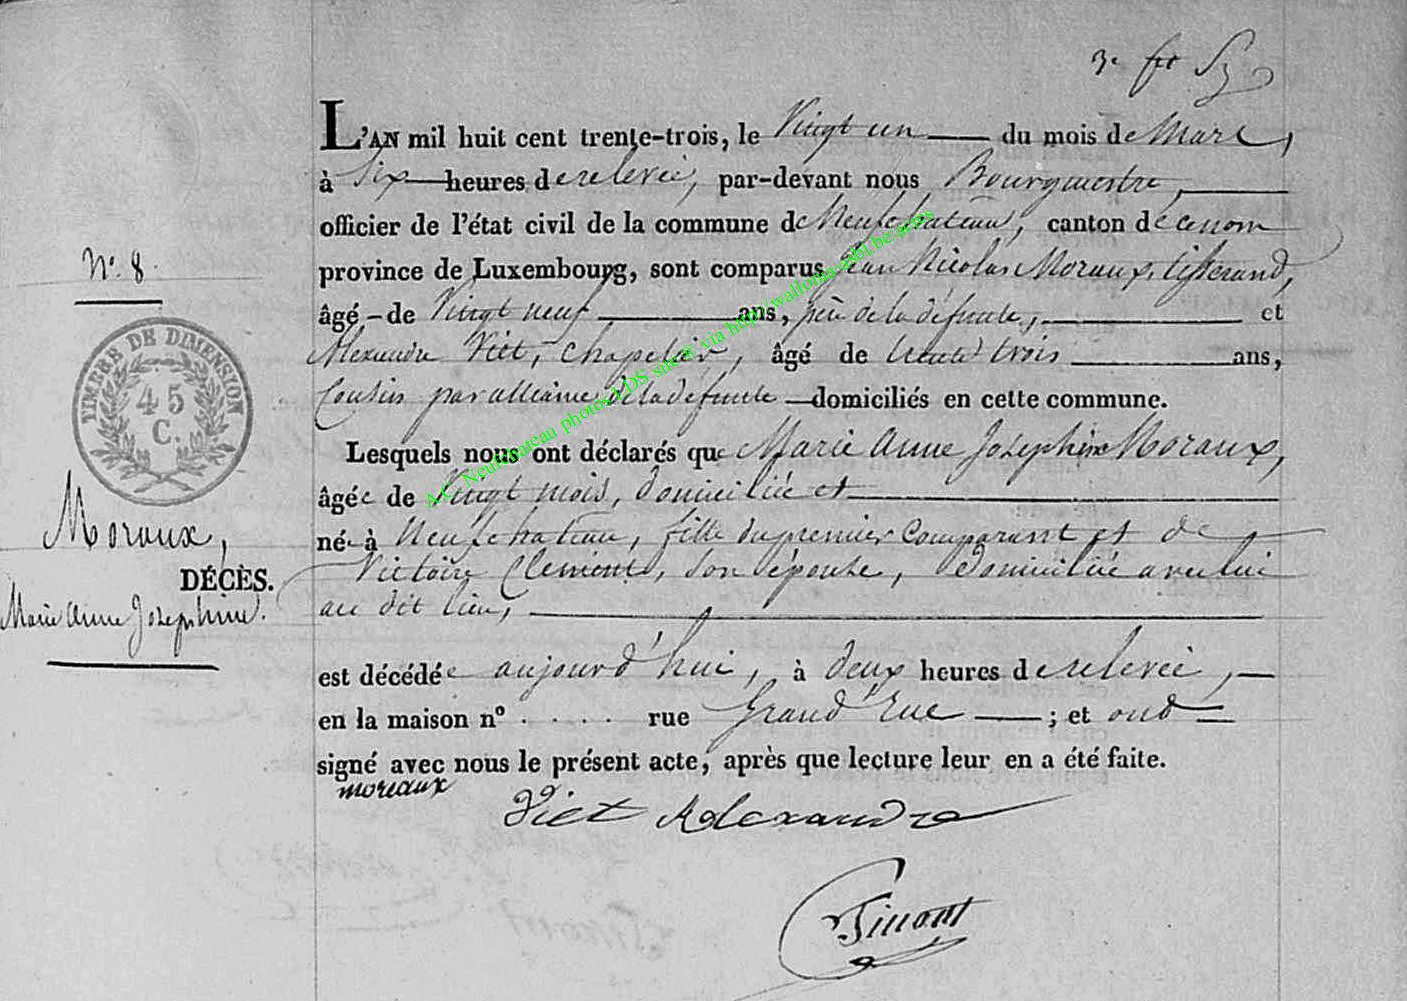 3e
L'AN mil huit cent trente-trois, le Vingt un du mois de Mars,
à Six heures de relevée, par-devant nous Bourgmestre,
officier de l'état civil de la commune de Neufchateau, canton de ce nom
province de Luxembourg, sont comparus Jean Nicolas Moraux, tisserand,
âgé de Vingt neuf ans, père de la défunte, et
Alexandre Viet, Chapelier, âgé de trente trois ans,
Cousin par alliance de la défunte domiciliés en cette commune.
Lesquels nous ont déclarés que Marie Anne Josephine Moraux,
âgée de Vingt mois, domiciliée et
née à Neufchateau, fille du premier Comparant et de
Victoire Clement, son épouse, domiciliée avec lui
au dit lieu,
est décédée aujourd'hui, à deux heures de relevée,
en la maison no . . . . rue Grand'Rue ; et ont
signé avec nous le présent acte, après que lecture leur en a été faite.
moreaux
Viet Alexandre
Tinant
No. 8.
TIMBRE DE DIMENSION
45
C.
Moraux,
DÉCÈS.
Marie Anne Josephine.
A.C. Neufchateau photos LDS sur via http://wallonia-asbl.be/actes